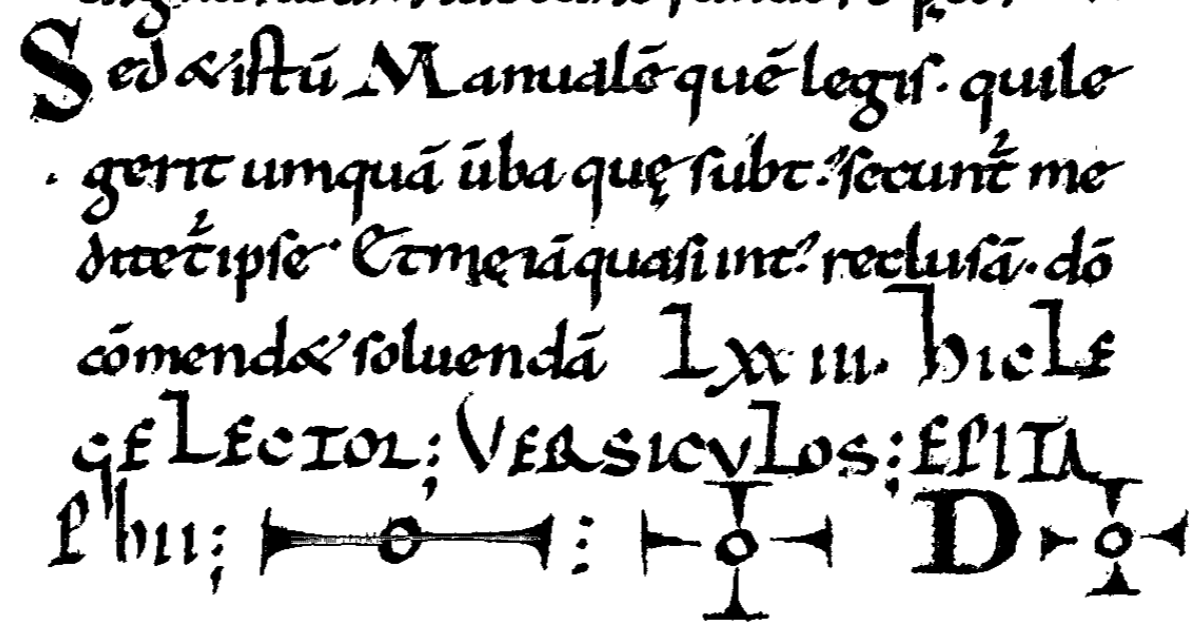 Sed & istū Manualē quē legis. qui le
gerit umquā ūba quę subt. secunt̄ me
ditet̄ ipse. Et mę iā quasi int. reclusā. dō
cōmend& soluendā LXXIII. hIC LE
GE LECTOR; VERSICVLOS; EPITA
PhII; D